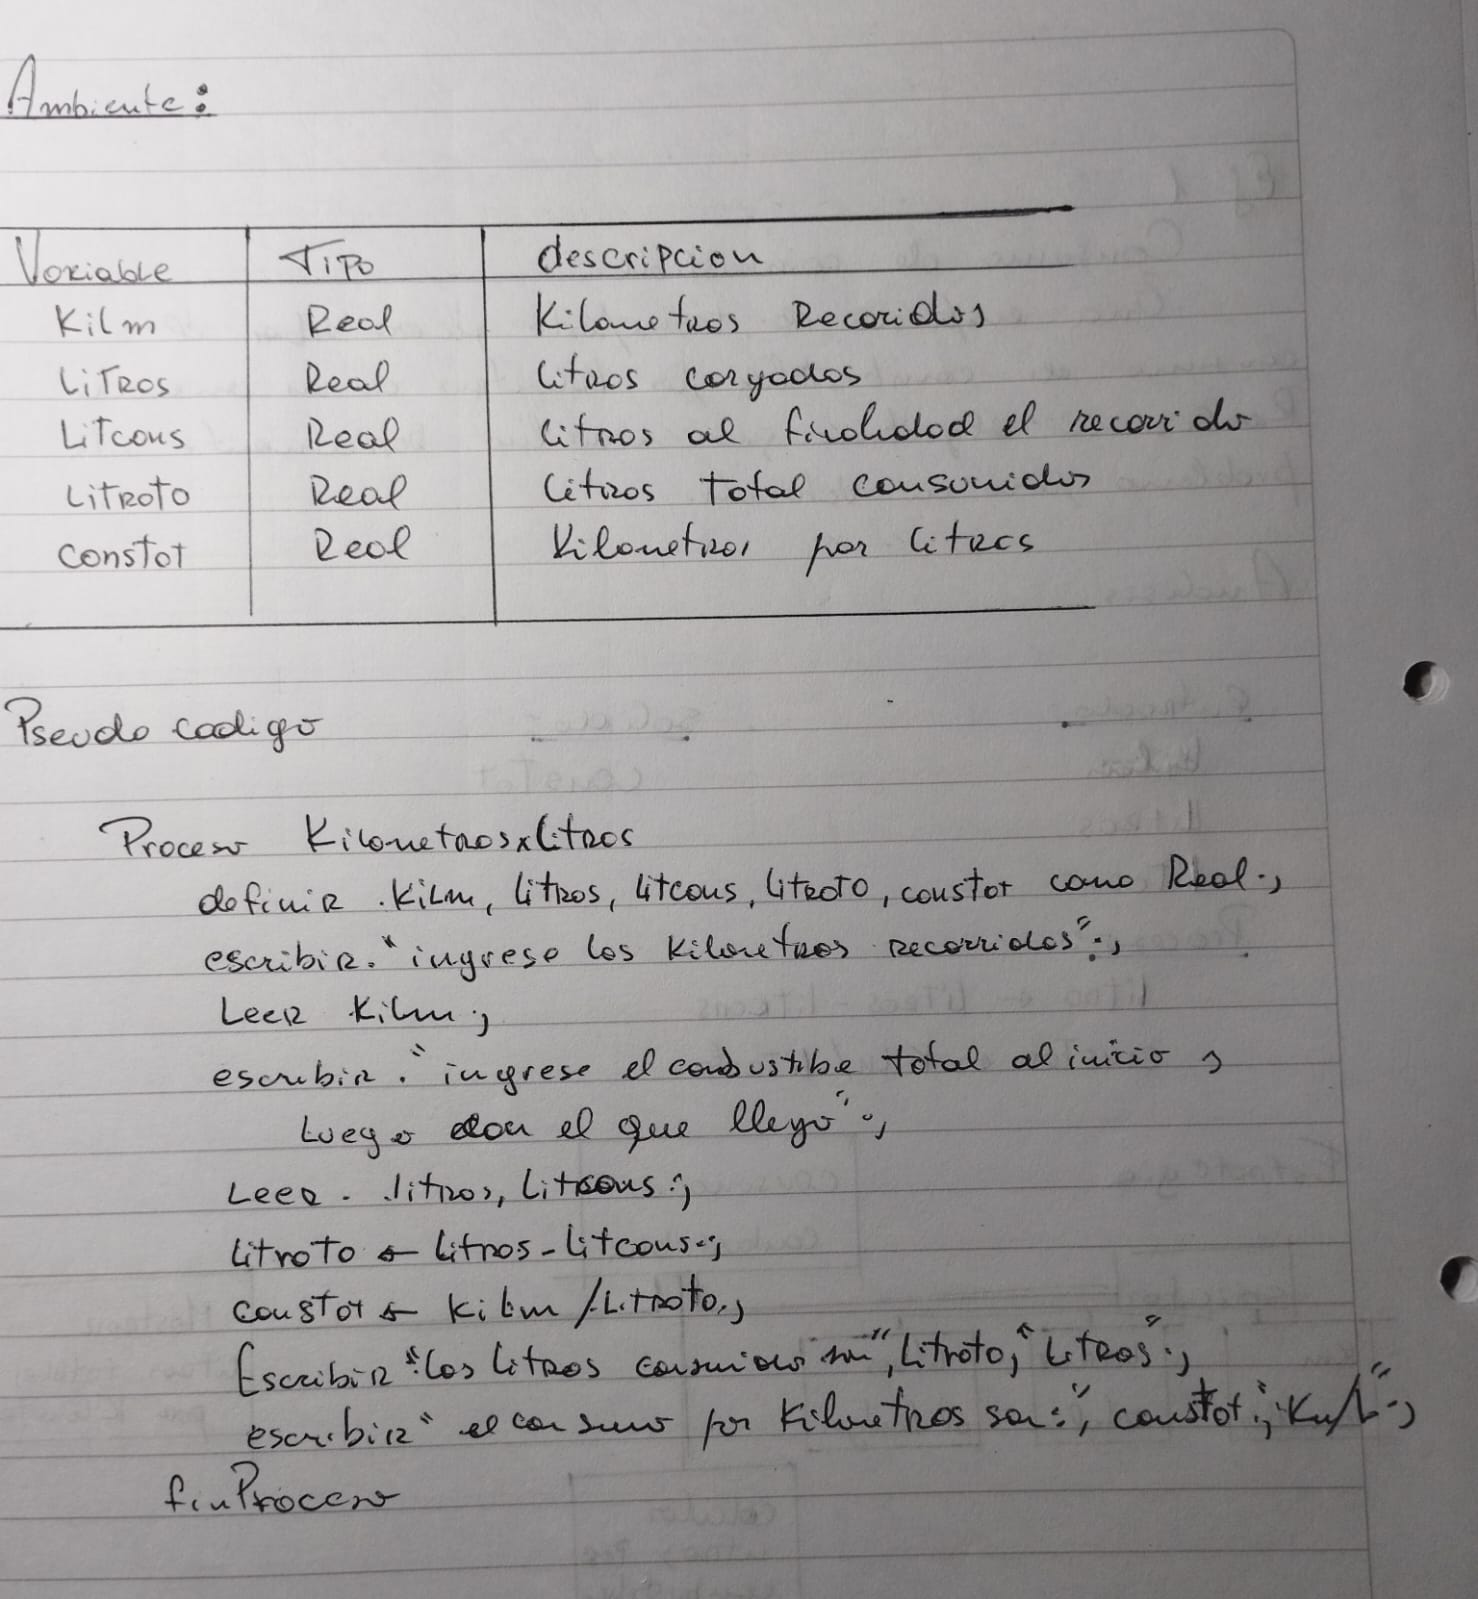 Ambiente:
Variable Tipo descripcion
Kilm Real Kilometros Recoridos
Litros Real litros cargados
Litcons Real litros al finalidad el recorrido
Litroto Real Litros total consumidos
constot Real Kilometros por litros
Pseudo codigo
Proceso KilometrosxLitros
definir Kilm, litros, litcons, litroto, constot como Real;
escribir "ingrese los Kilometros recorridos";
Leer Kilm;
escribir "ingrese el combustibe total al inicio,
Luego con el que llego";
Leer litros, Litcons;
Litroto ← Litros-Litcons;
constot ← Kilm/Litroto;
Escribir "los litros consumidos son", Litroto, "Litros";
escribir "el consumo por Kilometros son:", constot, "Km/L";
finProceso